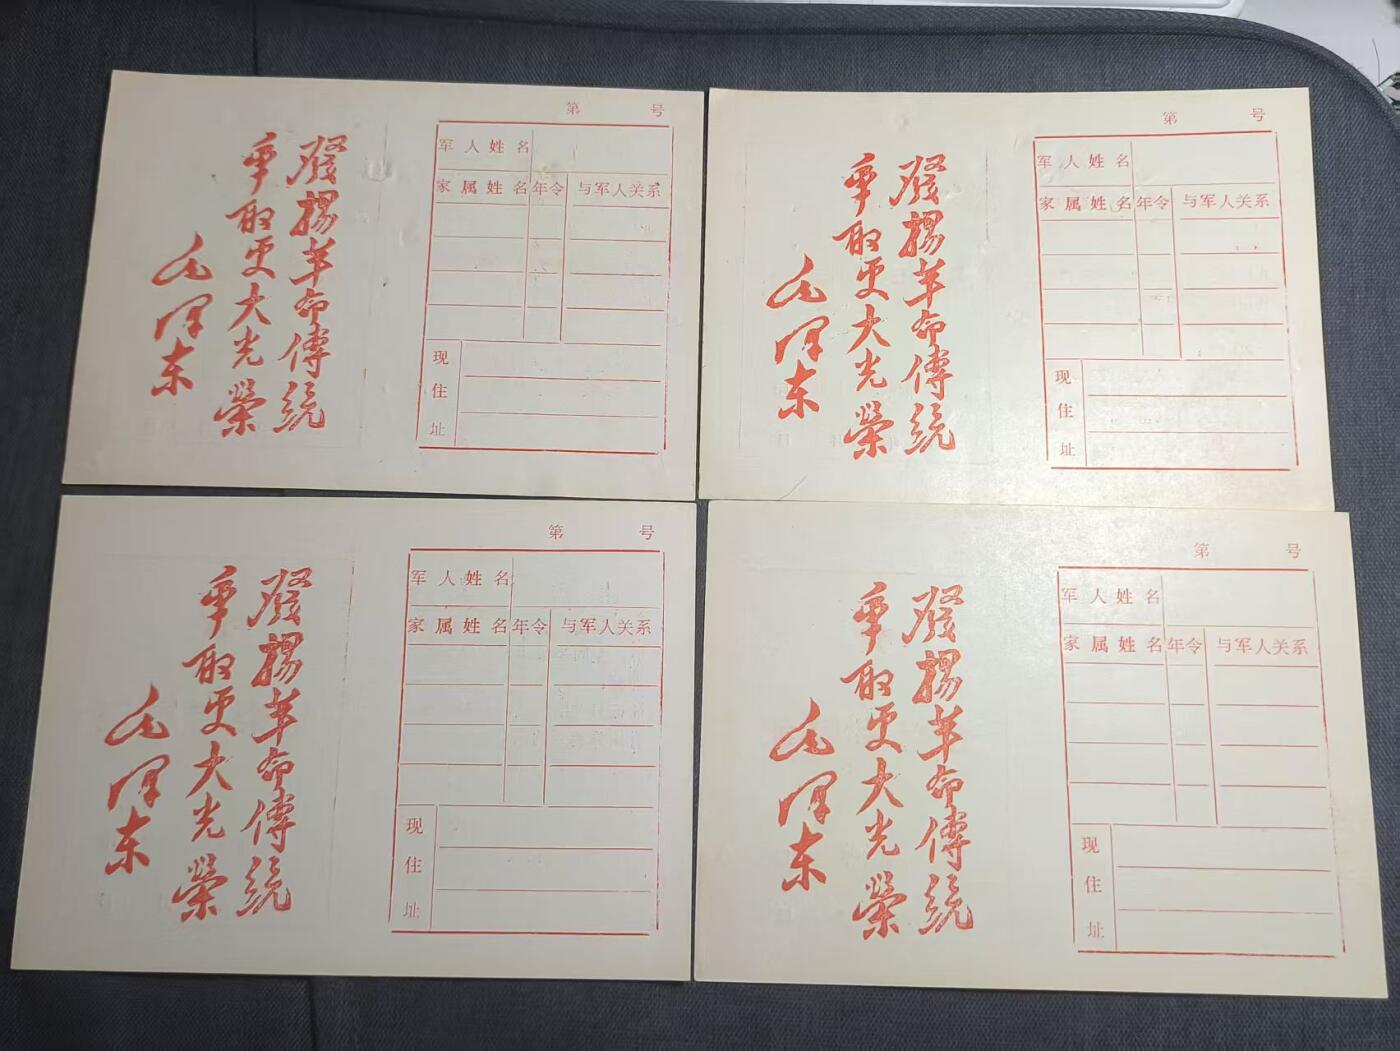 發揚革命傳統
爭取更大光榮
毛泽东
第 号
军人姓名
家属姓名 年令 与军人关系
现住址
發揚革命傳統
爭取更大光榮
毛泽东
第 号
军人姓名
家属姓名 年令 与军人关系
现住址
發揚革命傳統
爭取更大光榮
毛泽东
第 号
军人姓名
家属姓名 年令 与军人关系
现住址
發揚革命傳統
爭取更大光榮
毛泽东
第 号
军人姓名
家属姓名 年令 与军人关系
现住址